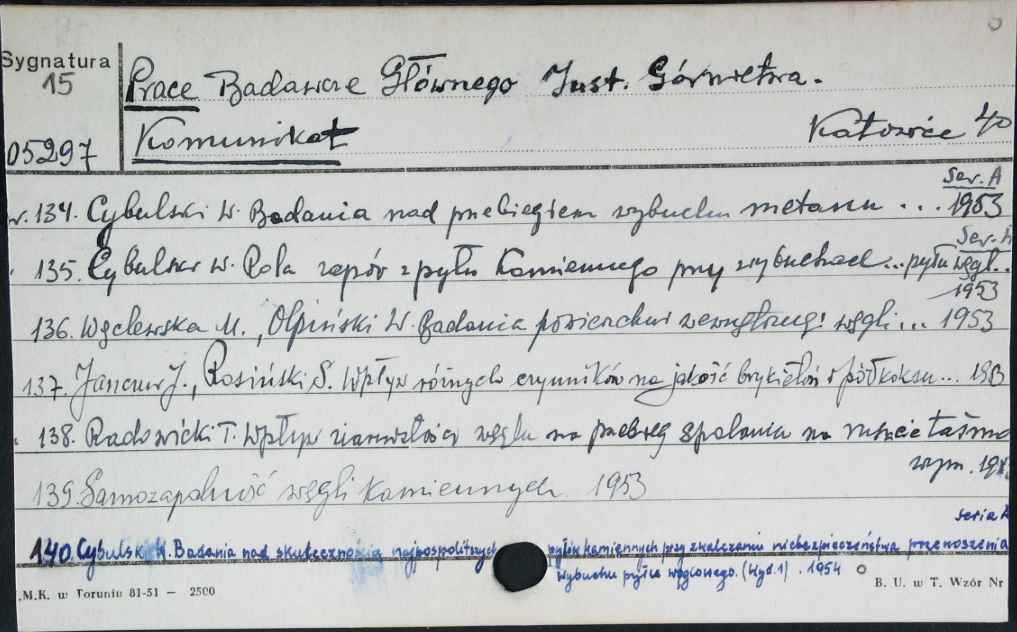 Sygnatura
15
05297
Prace Badawcze Głównego Inst. Górnictwa.
Komunikat
Katowice 40
Ser. A
134. Cybulski W. Badania nad przebiegiem wybuchu metanu ... 1953
Ser. A
135. Cybulski W. Rola zapór z pyłu kamiennego przy wybuchach ... pyłu węgl..
1953
136. Węclewska M., Olpiński W. Badania powierzchni wewnętrznej węgli ... 1953
137. J., Rosiński S. Wpływ różnych czynników na jakość brykietów i półkoksu ... 1953
138. Radowicki T. Wpływ ziarnistości węgla na przebieg spalania na ruszcie taśmo
wym. 195
139. Samozapalność węgli kamiennych 1953
seria A
140. Cybulski W. Badania nad skutecznością najpospolitszych pyłów kamiennych przy zwalczaniu niebezpieczeństwa przenoszenia
wybuchu pyłu węglowego. (Wyd. 1). 1954
.M.K. w Toruniu 81-51 — 2500
B. U. w T. Wzór Nr